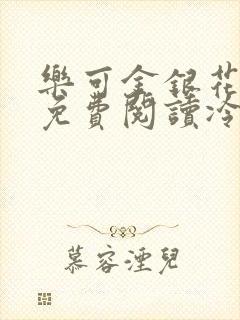 樂可金銀花
免費閱讀冷
慕容湮兒